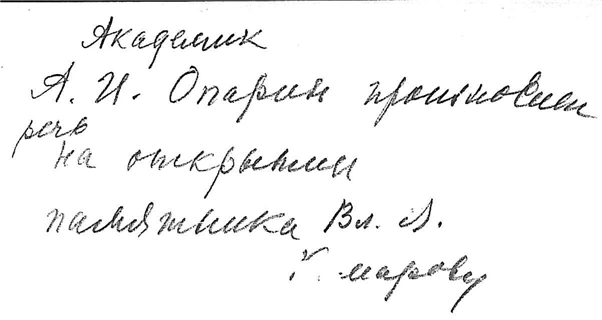 Академик
А. И. Опарин произносит
речь
на открытии
памятника Вл. Л.
Комарову